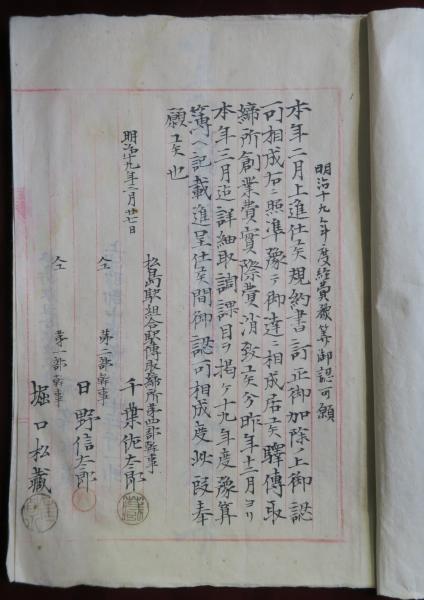 明治十九年度経費豫算御認可願
本年二月上進仕候規約書訂正御加除ノ上御認
可相成右ニ照準豫テ御達ニ相成居候驛傳取
締所創業費實際費消致候分昨年十二月ヨリ
本年三月迄詳細取調課目ヲ掲ケ十九年度豫算
簿ヘ記載進呈仕候間御認可相成度此段奉
願候也
明治十九年二月廿七日
松島駅組合驛傳取締所第四部幹事
千葉佐太郎
仝 第二部幹事
日野信太郎
仝 第一部幹事
堀口松藏